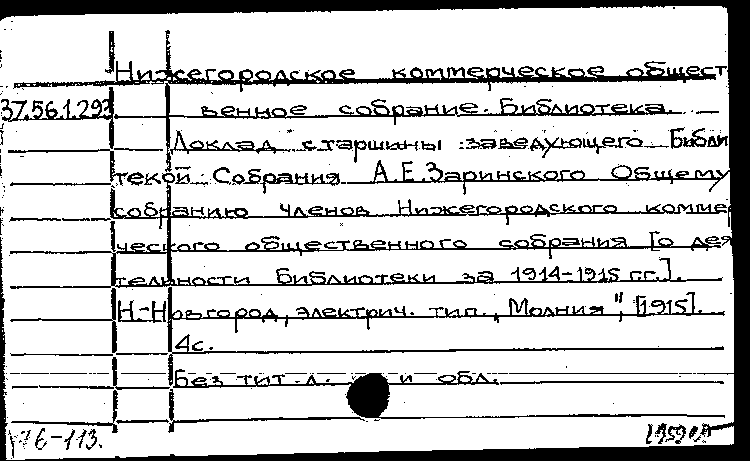 Нижегородское коммерческое общест
37.56.1.293. венное собрание. Библиотека.
Доклад старшины заведующего Библи
текой Собрания А.Е.Заринского Общему
собранию членов Нижегородского комме
ческого общественного собрания [о дея
тельности Библиотеки за 1914-1915 гг.].
Н.-Новгород, электрич. тип. „Молния", [1915].
4с.
Без тит.л. и обл.
76-113.